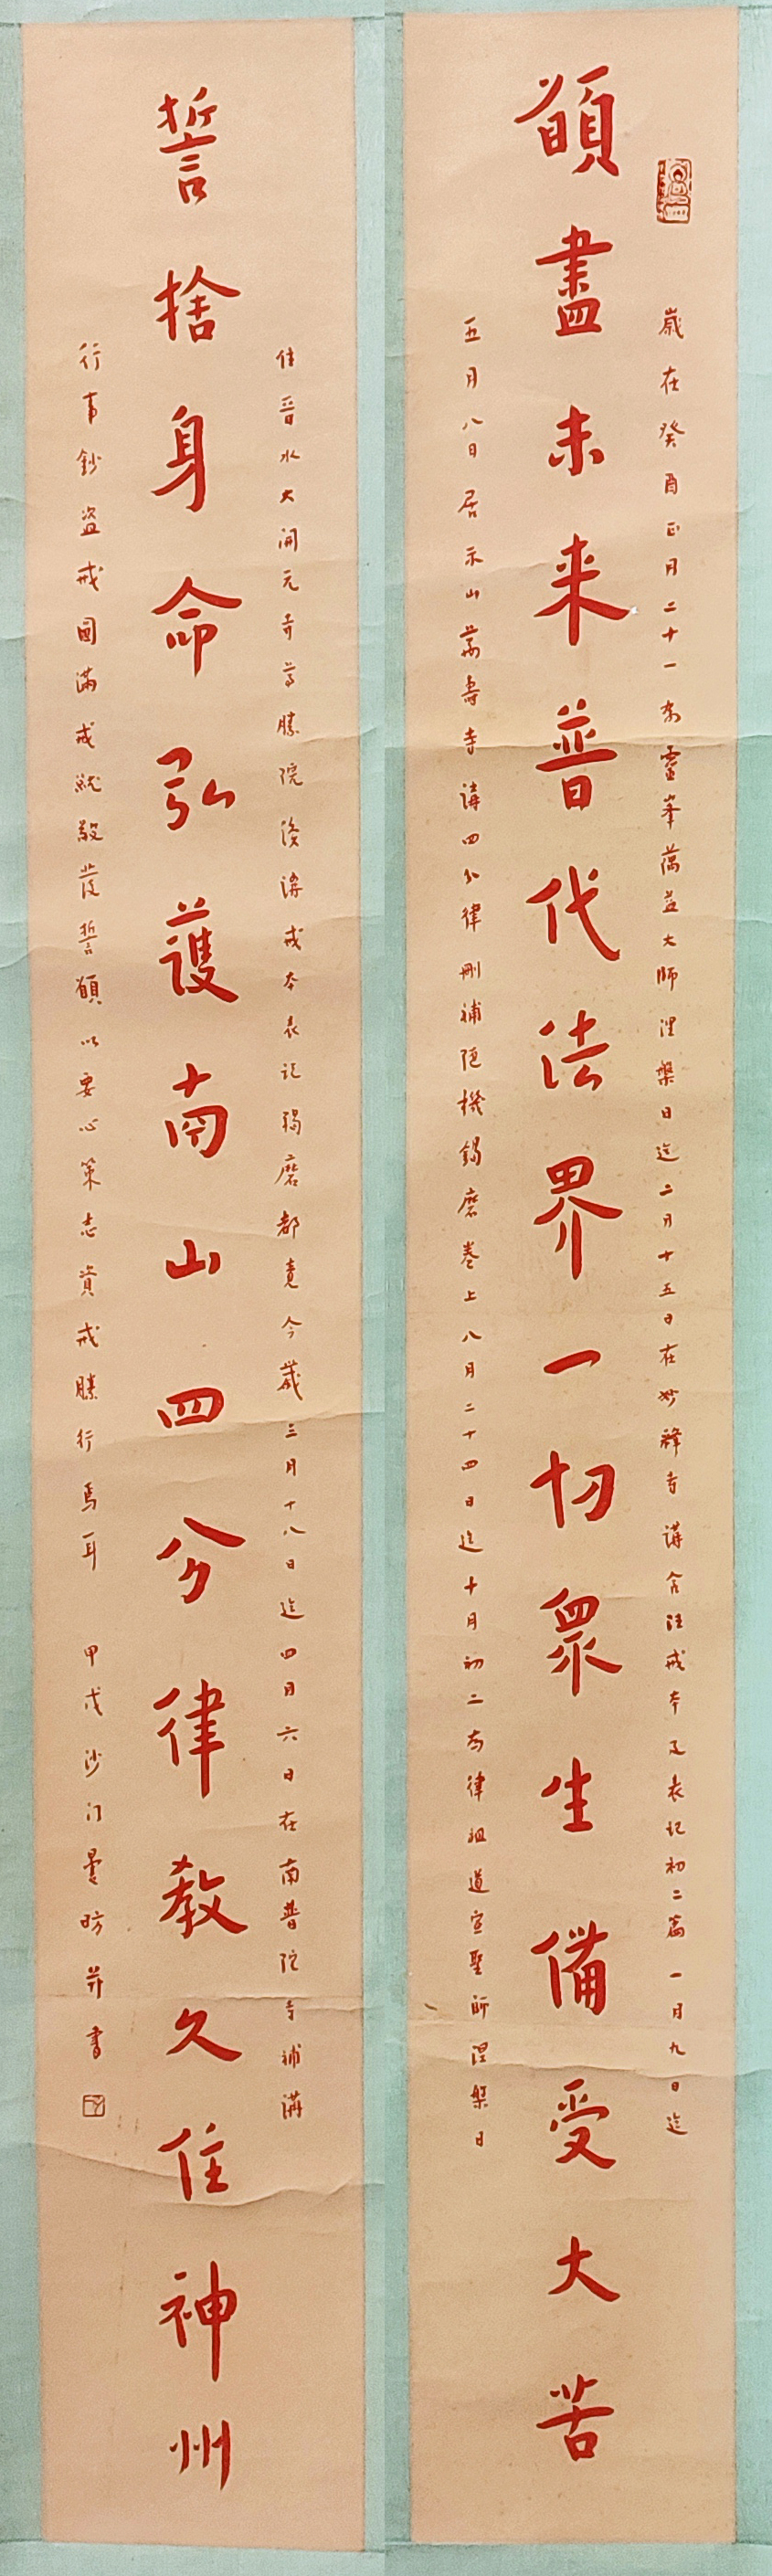 歲在癸酉正月二十一為靈峯蕅益大師涅槃日迄二月十五日在妙釋寺講含注戒本及表記初二篇一月九日迄
願盡未来普代法界一切眾生備受大苦
五月八日居禾山萬壽寺講四分律刪補随機羯磨卷上八月二十四日迄十月初二為律祖道宣聖師涅槃日
住晉水大開元寺尊勝院後講戒本表記羯磨都竟今歲三月十八日迄四月六日在南普陀寺補講
誓捨身命弘護南山四分律教久住神州
行事鈔盜戒圓滿成就敬發誓願以要心策志資戒勝行焉耳 甲戌沙门曇昉并書